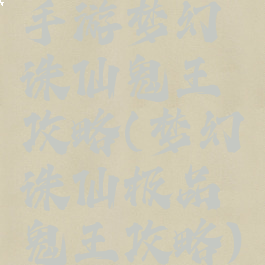 手游梦幻
诛仙鬼王
攻略(梦幻
诛仙极品
鬼王攻略)